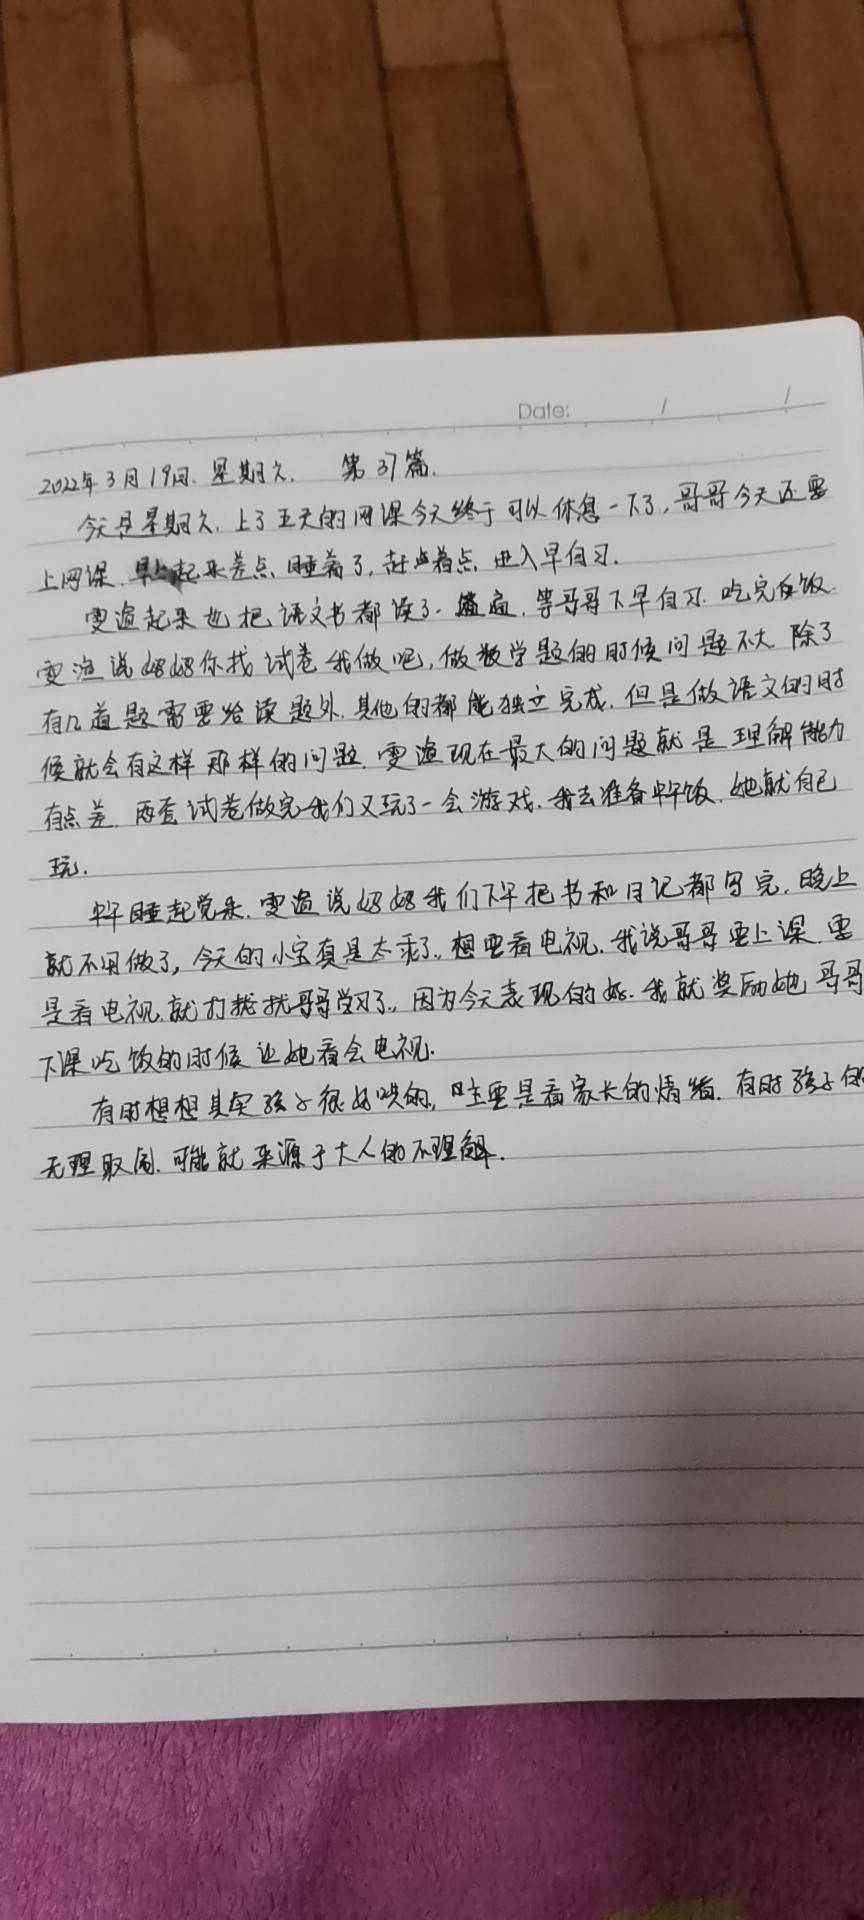 Date: / /
2022年3月19日.星期六. 第37篇.
今天是星期六.上了五天的网课今天终于可以休息一下了,哥哥今天还要
上网课.早上起来差点睡着了,赶点进入早自习.
起来也把语文书都读了一遍.等哥哥下早自习.吃完饭.
说妈妈你找试卷我做吧,做数学题的时候问题不大.除了
有几道题需要给读题外.其他的都能独立完成.但是做语文的时
候就会有这样那样的问题.现在最大的问题就是理解能力
有点差.两套试卷做完我们又玩了一会游戏.我去准备中午饭.她就自己
玩.
中午睡起觉来.说妈妈我们下午把书和日记都写完.晚上
就不用做了,今天的小宝真是太乖了.想要看电视.我说哥哥要上课.要
是看电视.就打扰哥哥学习了.因为今天表现的好.我就奖励她哥哥
下课吃饭的时候让她看会电视.
有时想想其实孩子很好哄的,主要是看家长的情绪.有时孩子的
无理取闹.可能就来源于大人的不理解.